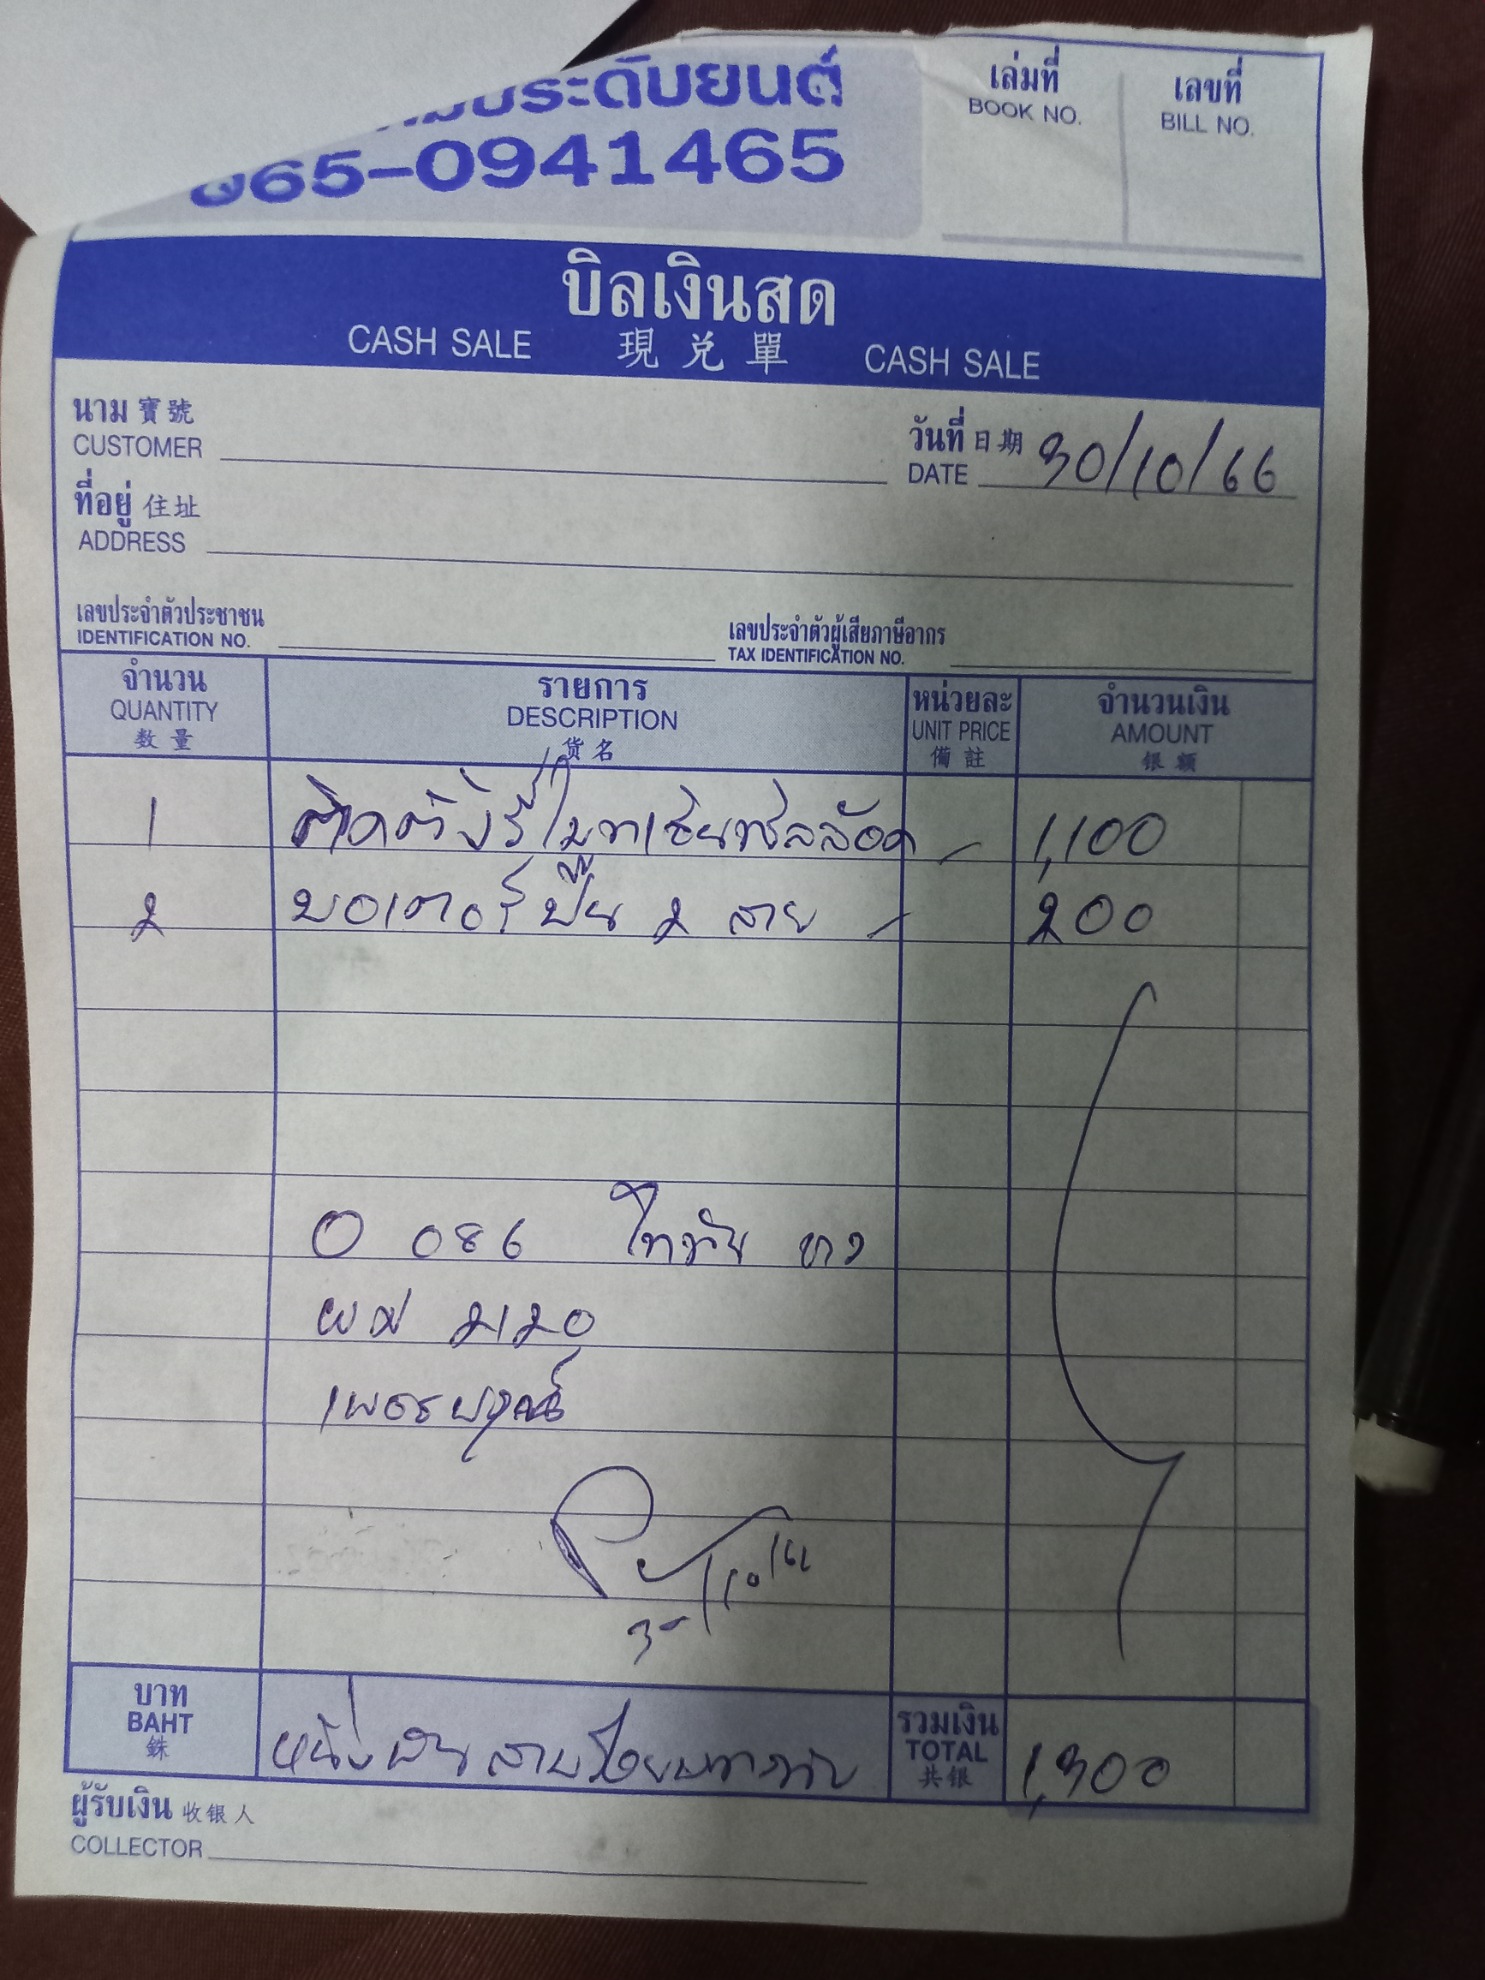 ประดับยนต์
065-0941465
เล่มที่
BOOK NO.
เลขที่
BILL NO.
บิลเงินสด
CASH SALE 現兌單 CASH SALE
นาม 寶號
CUSTOMER
วันที่ 日期
DATE 30/10/66
ที่อยู่ 住址
ADDRESS
เลขประจำตัวประชาชน
IDENTIFICATION NO.
เลขประจำตัวผู้เสียภาษีอากร
TAX IDENTIFICATION NO.
จำนวน รายการ หน่วยละ จำนวนเงิน
QUANTITY DESCRIPTION UNIT PRICE AMOUNT
数量 货名 備註 银额
1 ติดตั้งรีโมทเซ็นทรัลล็อค 1,100
2 มอเตอร์ปืน 2 สาย 200
086
ผม 2120
เพชรบูรณ์
30/10/66
บาท
BAHT
銖
หนึ่งพันสามร้อยบาท
รวมเงิน
TOTAL
共银
1,300
ผู้รับเงิน 收银人
COLLECTOR